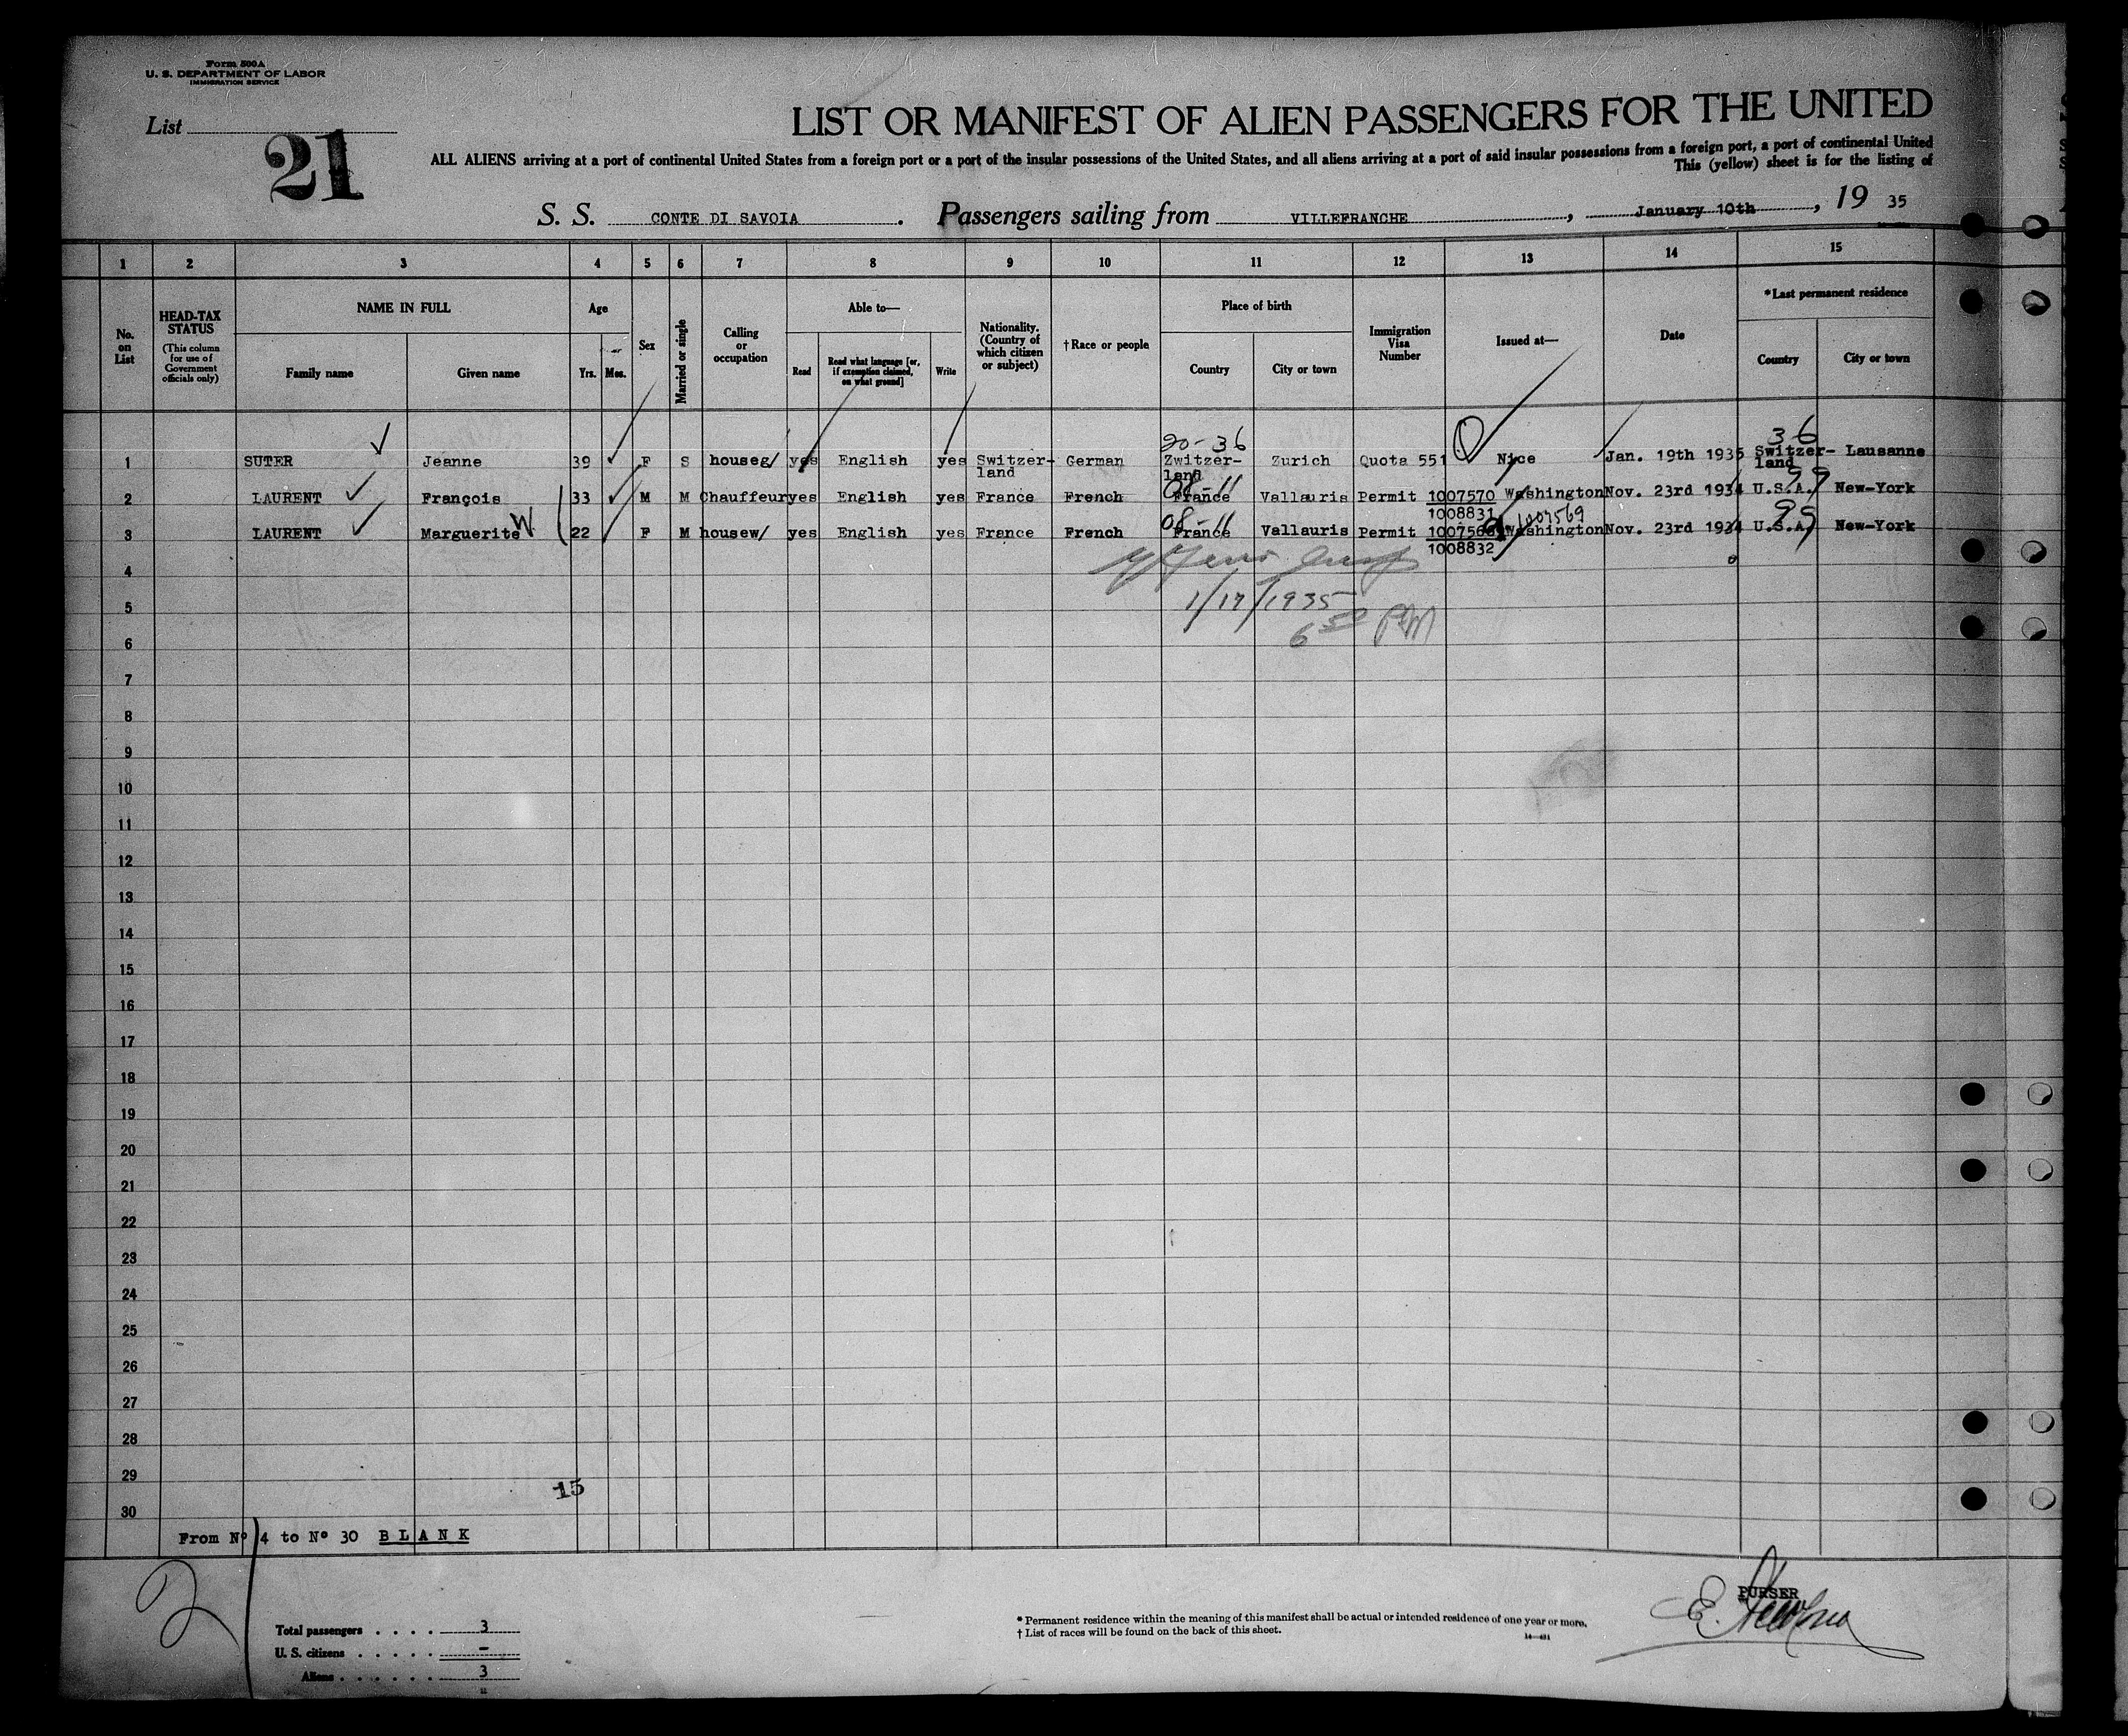 Form 500A
U. S. DEPARTMENT OF LABOR
IMMIGRATION SERVICE
List
21
LIST OR MANIFEST OF ALIEN PASSENGERS FOR THE UNITED
ALL ALIENS arriving at a port of continental United States from a foreign port or a port of the insular possessions of the United States, and all aliens arriving at a port of said insular possessions from a foreign port, a port of continental United
This (yellow) sheet is for the listing of
S. S. CONTE DI SAVOIA. Passengers sailing from VILLEFRANCHE, January 10th, 19 35
1 2 3 4 5 6 7 8 9 10 11 12 13 14 15
No. on List
HEAD-TAX STATUS (This column for use of Government officials only)
NAME IN FULL
Family name
Given name
Age
Yrs. Mos.
Sex
Married or single
Calling or occupation
Able to—
Read
Read what language [or, if exemption claimed, on what ground]
Write
Nationality. (Country of which citizen or subject)
†Race or people
Place of birth
Country
City or town
Immigration Visa Number
Issued at—
Date
*Last permanent residence
Country
City or town
20-36 3-6
1 SUTER Jeanne 39 F S houseg/ yes English yes Switzer-land German Zwitzer-land Zurich Quota 551 Nice Jan. 19th 1935 Switzer-land Lausanne
08-11 99
2 LAURENT François 33 M M Chauffeur yes English yes France French France Vallauris Permit 1007570 Washington Nov. 23rd 1934 U.S.A. New-York
1008831 1007569
08-11 99
3 LAURENT Marguerite W 22 F M housew/ yes English yes France French France Vallauris Permit Washington Nov. 23rd 1934 U.S.A. New-York
1008832
4
1/17/1935
5
6 50 PM
6
7
8
9
10
11
12
13
14
15
16
17
18
19
20
21
22
23
24
25
26
27
28
29
15
30
From Nº 4 to Nº 30 BLANK
2
Total passengers . . . . 3
U. S. citizens . . . . . —
Aliens . . . . . . 3
* Permanent residence within the meaning of this manifest shall be actual or intended residence of one year or more.
† List of races will be found on the back of this sheet.
PURSER